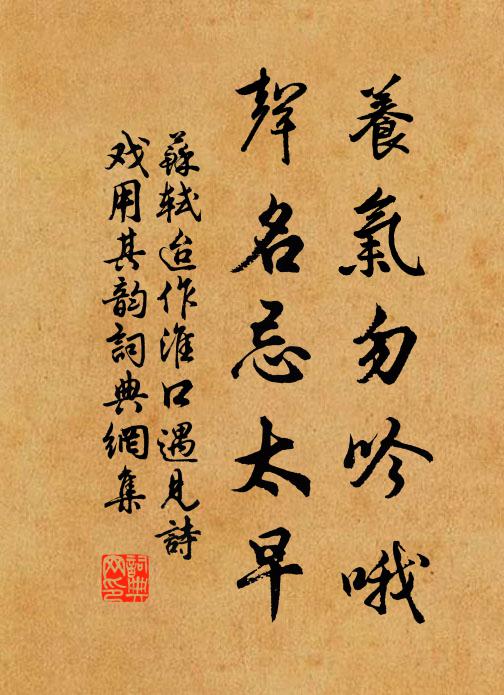 養氣勿吟哦
聲名忌太早
蘇軾迨作淮口遇見詩
戏用其韵詞典網集
詞典
网印